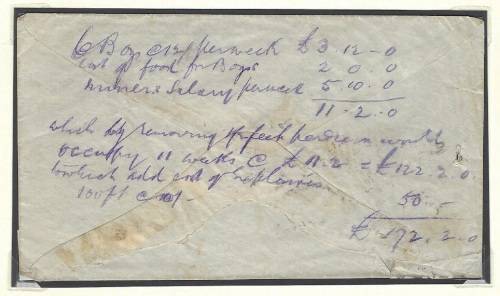 6 Boys @ 12/ per week £3. 12 - 0
cost of food for Boys 2. 0. 0
Miners Salary per week 5. 10. 0
11 - 2. 0
which by removing feet per
occupy 11 weeks @ £11.2 = £122. 2. 0.
to which add cost of explosives
100 ft @ 50 -
£172. 2. 0